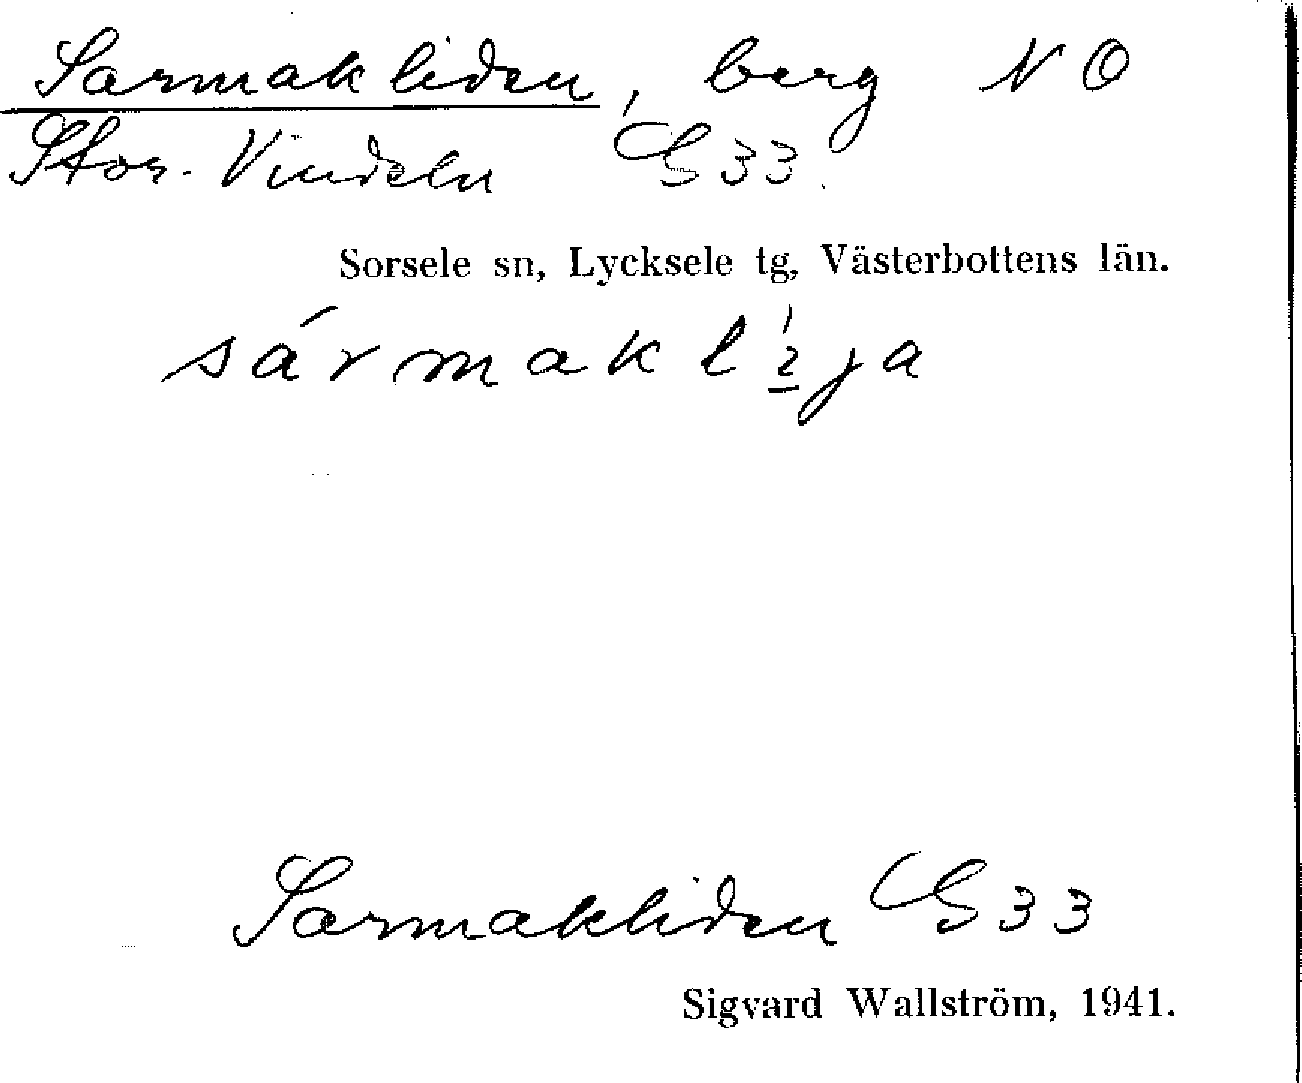 Sarmakliden, berg NO
Stor-Vindeln G33.
Sorsele sn, Lycksele tg, Västerbottens län.
sármak
Sarmakliden G33
Sigvard Wallström, 1941.